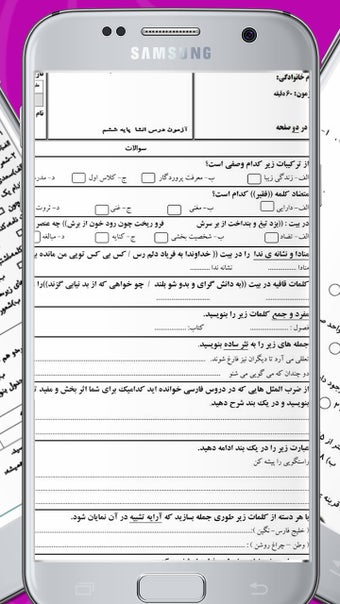 SAMSUNG
م خانوادگی:
مون: ۶۰ دقیقه
در دو صفحه
آزمون درس انشا پایه ششم
نام
سوالات
از ترکیبات زیر کدام وصفی است؟
الف- زندگی زیبا ب- معرفت پروردگار ج- کلاس اول د- مدر
متضاد کلمه ((فقیر)) کدام است؟
الف- دارایی ب- مغنی ج- غنی د- ثروت
در بیت : ((یزد تیغ و بنداخت از بر سرش فرو ریخت چون رود خون از برش)) چه عنصر
الف- تضاد ب- شخصیت بخشی ج- کنایه د- مبالغه
منادا و نشانه ی ندا را در بیت (( خداوندا به فریاد دلم رس / کس بی کس تویی من مانده بی
منادا: نشانه ندا:
کلمات قافیه در بیت ((به دانش گرای و بدو شو بلند / چو خواهی که از بد نیابی گزند))را
مفرد و جمع کلمات زیر را بنویسید.
فصول : کتاب:
جمله های زیر را به نثر ساده بنویسید.
تعلقی می آرد تا دیگران نیز فارغ شوند.
دو چندان که می گویی می شنو
از ضرب المثل هایی که در دروس فارسی خوانده اید کدامیک برای شما اثر بخش و مفید
بنویسید و در یک بند شرح دهید.
عبارت زیر را در یک بند ادامه دهید.
راستگویی را پیشه کن
با هر دسته از کلمات زیر طوری جمله بسازید که آرایه تشبیه در آن نمایان شود.
( خلیج فارس- نگین )
( وطن – چراغ روشن ) :